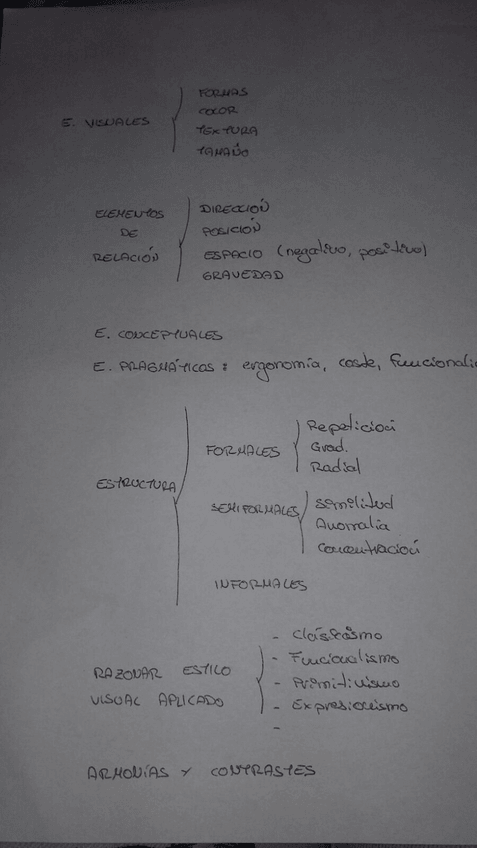 FORMAS
COLOR
E. VISUALES
TEXTURA
TAMAÑO
DIRECCIÓN
ELEMENTOS
POSICIÓN
DE
ESPACIO (negativo, positivo)
RELACIÓN
GRAVEDAD
E. CONCEPTUALES
E. PRAGMÁTICAS: ergonomía, coste, funcionali
Repetición
FORMALES
Grad.
Radial
ESTRUCTURA
Similitud
SEMIFORMALES
Anomalia
Concentración
INFORMALES
- Clasicismo
- Funcionalismo
RAZONAR ESTILO
- Primitivismo
VISUAL APLICADO
- Expresionismo
-
ARMONÍAS Y CONTRASTES